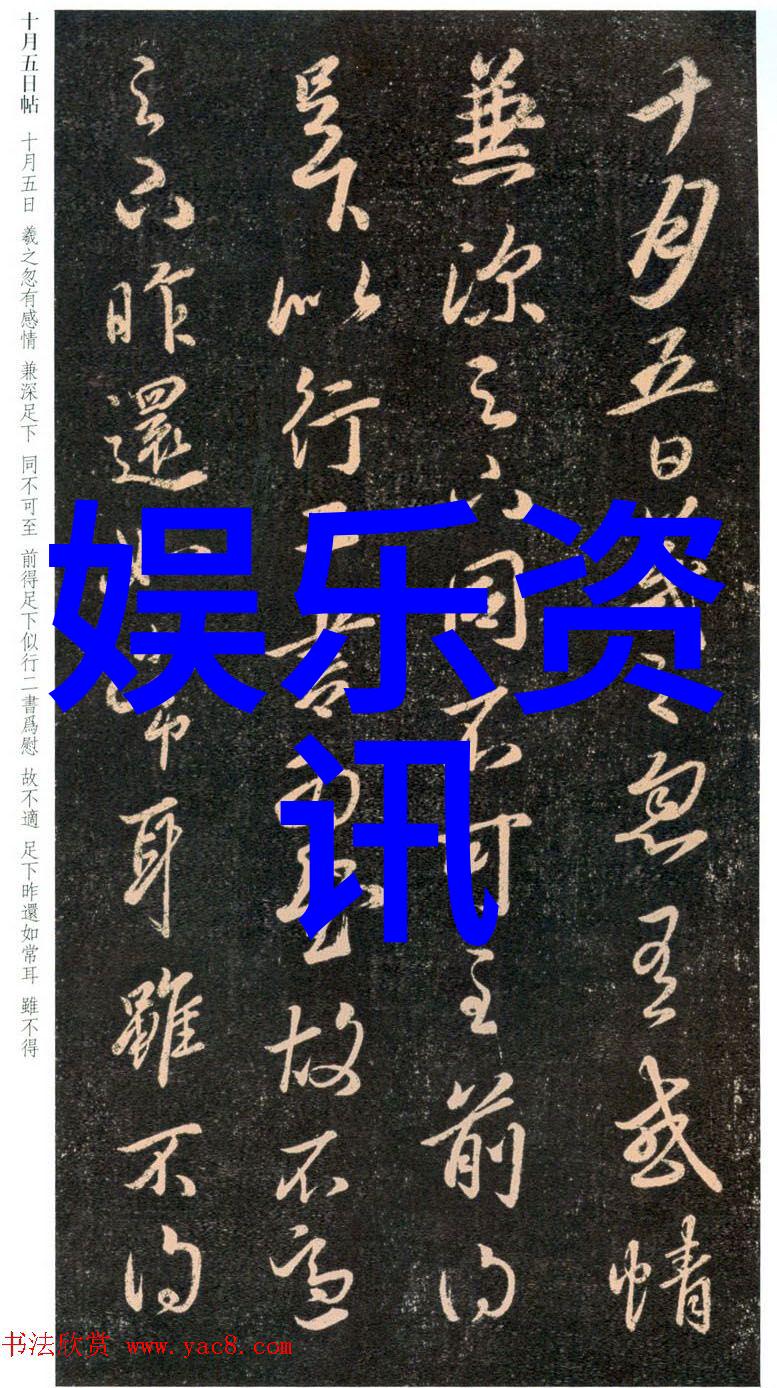 十月五日羲之忽有感情
兼深足下同不可至前得
足下似行二書爲慰故不適
足下昨還如常耳雖不得
十月五日帖 十月五日 羲之忽有感情 兼深足下 同不可至 前得足下似行二書爲慰 故不適 足下昨還如常耳 雖不得
娱乐资
讯
书法欣赏 www.yac8.com